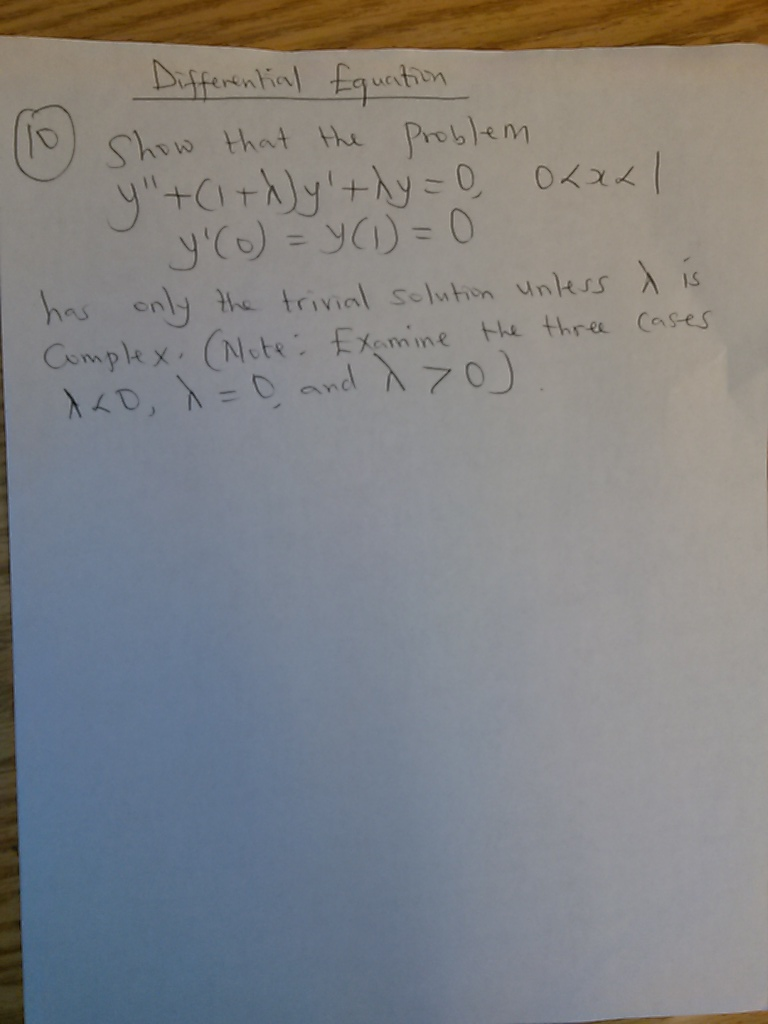 Differential Equation
10 Show that the problem
y'' + (1+λ)y' + λy = 0, 0<x<1
y'(0) = y(1) = 0
has only the trivial solution unless λ is
Complex. (Note: Examine the three cases
λ<0, λ=0, and λ>0).